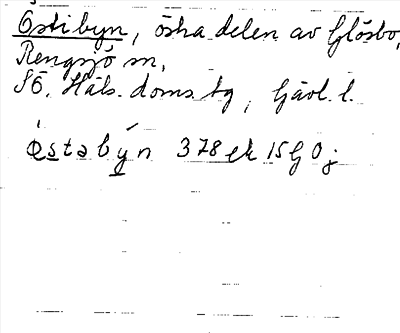 Östibyn, östra delen av Glösbo,
Rengsjö sn,
SÖ. Häls. doms. tg, Gävl. l.
östabýn 378 ek 15 G 0 j